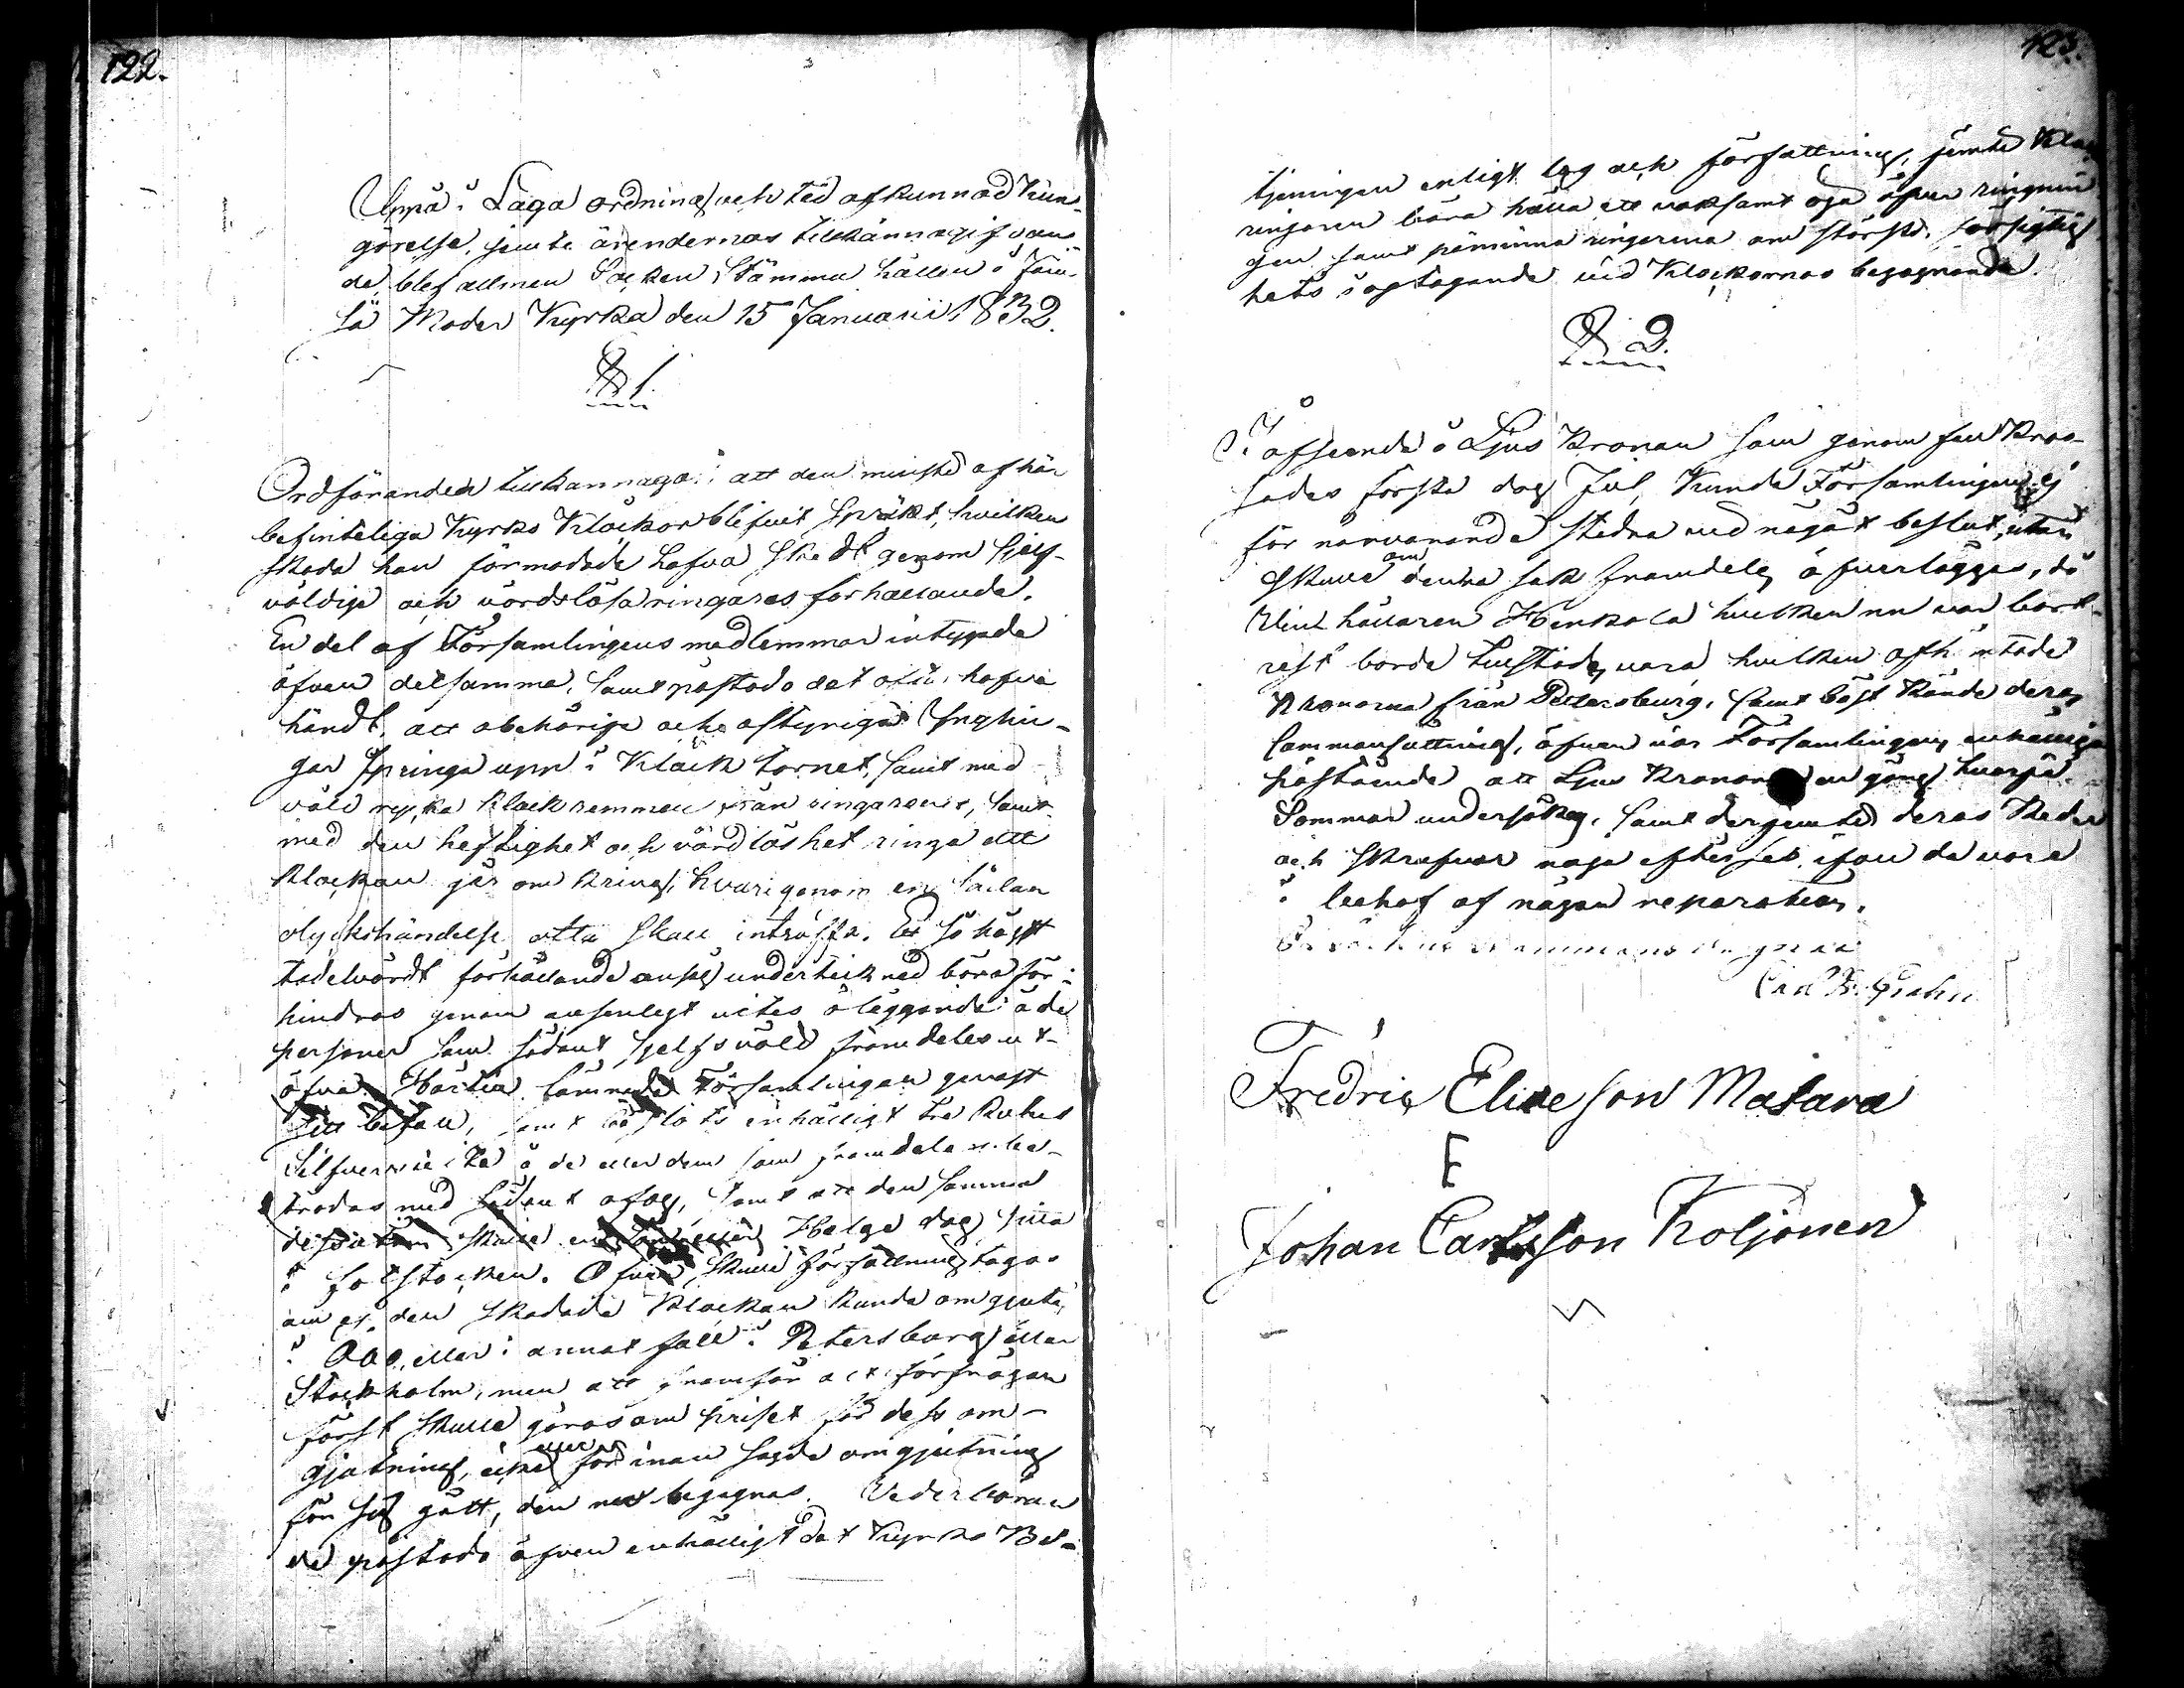 122.
Uppå i Laga ordning och tid afkunnad Kun-
görelse, jemte ärendernas tillkännagifvan-
de, blef allmen Socken Stämma hållen i
Moder Kyrka den 15 Januarii 1832.
§ 1.
Ordföranden tillkännagaf: att den minsta af här
befinteliga Kyrko Klockor blifvit spräkt, hvilken
skada han förmodade hafva skedt genom sjelf-
våldige och vårdslösa ringares förhållande.
En del af Församlingens medlemmar intygade
äfven detsamma, samt påstodo det ofta hafva
händt, att obehörige och ostyriga Ynglin-
gar springa upp i Klock tornet, samt med
våld rycka klockremmen från ringarene, samt
med den heftighet och vårdlöshet ringa att
klockan går omkring, hvarigenom en sådan
olyckshändelse ofta skall inträffa. Et så högst
tadelvärdt förhållande ansåg undertecknad böra för-
hindras genom ansenligt vites åläggande å de
personer som sådant sjelfsvåld framdeles ut-
öfva. Härtill lämnade Församlingen genast
sitt bifall, samt beslöts enhälligt tre Rubels
Silfver vite å de eller dem som framdeles be-
trädas med sådant ofog, samt att den samma
dessutom skulle en Helge dag sitta
i fotstocken. Äfven skulle författning tagas
om ej den skadade Klockan kunde omgjutas
i Åbo, eller i annat fall i Petersburg eller
Stockholm, men att framför allt förfrågan
först skulle göras om priset för dess om-
gjutning, icke eller för innan sagde omgjutning
för sig gått, den mer begagnas. Vederböran
de påstodo äfven enhälligt det Kyrko Be-
123.
tjeningen enligt lag och författning, jemte Klock
ringaren böra hålla ett vaksamt öga öfver ringnin
gen samt påminna ringarena om största försigtig
hets iagtagande vid Klockornas begagnande.
§ 2.
I afseende å Ljus Kronan som genom
sades första dag Jul, kunde Församlingen ej
för närvarande stadna vid något beslut, utan
skulle om denna sak framdeles öfverläggas, då
hållaren Henkola hvilken nu var bort-
rest borde tillstädes vara, hvilken afhämtade
Kronorna från Petersburg, samt bäst kände deras
sammansättning, äfven var Församlingens enhälliga
påstående att Ljus Kronorna en gång hvarje
Sommar undersökas, samt derjemte deras Kedor
och Skrufvar noga efterses, ifall de vore
i behof af någon reparation.
Carl Fr. Grahn
Fredric Eliaeson Matara
E
Johan Carlsson Koljonen